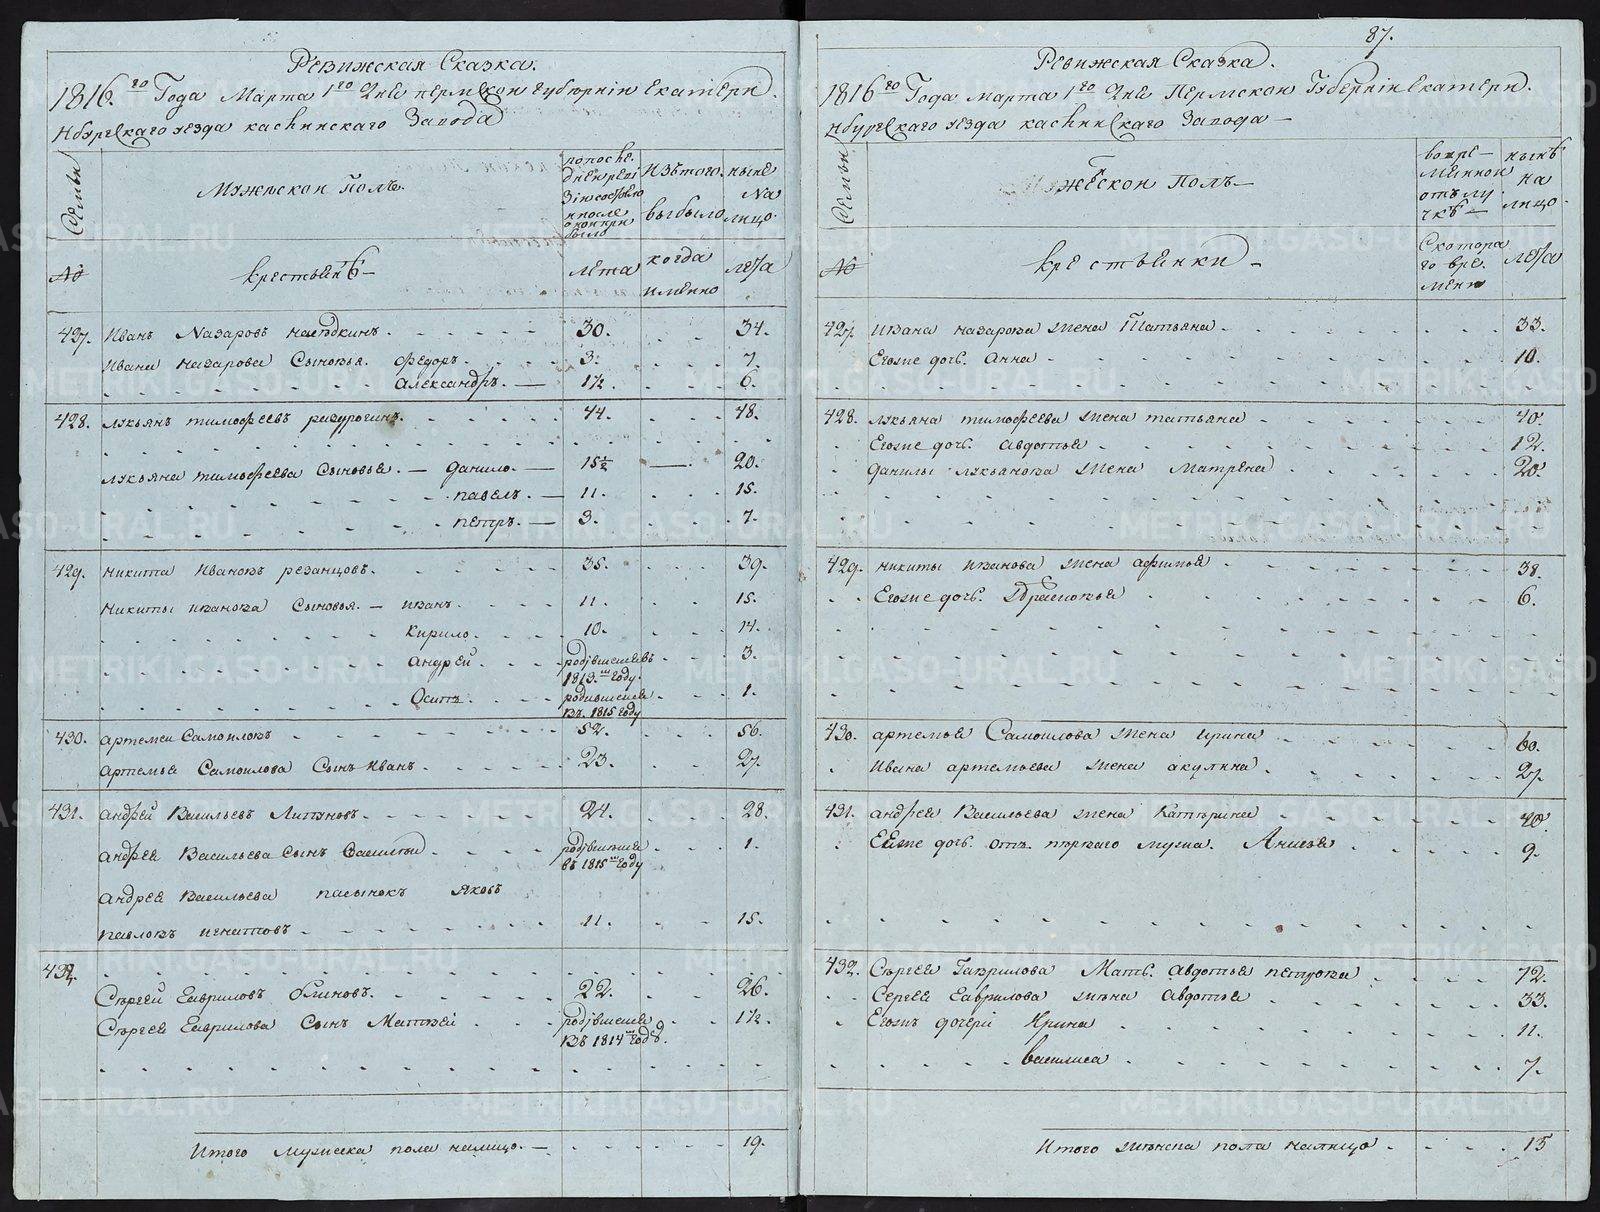 87.
Ревижская Сказка.
1816.го Года Марта 1го Дня пермской губернiи Екатерин.
бурскаго уезда каслинскаго Завода
Семьи
Мужескои Полъ.
по последней ревизiи состояло и после оной прибыло
Изътого выбыло
ныне на лицо
№
крестьянъ
лета
когда имянно
лета
427. Иванъ Назаровъ 30. 34.
Ивана Назарова Сыновья. Федоръ. 3. 7.
Александръ. 1½. 6.
428. лукьянъ тимофеевъ 44. 48.
лукьяна тимофеева Сыновья. данило. 15½ 20.
павелъ. 11. 15.
петръ. 3. 7.
429. никита Ивановъ резанцовъ. 35. 39.
Никиты иванова Сыновья. иванъ. 11. 15.
Кирило. 10. 14.
андрей. родившеися въ 1813.м году. 3.
Осипъ. родившеися въ. 1815 году 1.
430. артемеи Самоиловъ 52. 56.
артемья Самоилова Сынъ Иванъ. 23. 27.
431. андрей Васильевъ 24. 28.
андрея Васильева Сынъ Василеи родившеися въ 1815м году 1.
андрея Васильева пасынокъ яковъ
павловъ игнатовъ 11. 15.
432.
Сергей Гавриловъ блиновъ. 22. 26.
Сергея Гаврилова Сынъ Матвей родившеися въ 1814м годъ. 1½.
Итого мужеска пола налицо. 19.
Ревижская Сказка.
1816го Года марта 1го Дня Пермскои Губернiи Екатерин.
бурскаго уезда каслинскаго Завода
Семьи
Женскои Полъ
во временнои отълучкѣ
нынѣ на лицо
№
крестьянки
С котораго времени
лета
427. ивана назарова жена Татьяна 33.
Егоже дочь. анна 10.
428. лукьяна тимофеева жена татьяна 40.
Егоже дочь. авдотья 12.
данилы лукьянова жена матрена 20.
429. никиты иванова жена афимья 38.
Егоже дочь. 6.
430. артемья Самоилова жена ирина 60.
Ивана артемьева жена акулина. 27.
431. андрея Васильева жена Катерина 40.
Ееже дочь. отъ перваго мужа. Анисья 9.
432. Сергея Гаврилова Мать. авдотья петрова 72.
Сергея Гаврилова жена авдотья 33.
Егожъ дочери Ирина 11.
василиса 7.
Итого женска пола налицо 15
METRIKI.GASO-URAL.RU